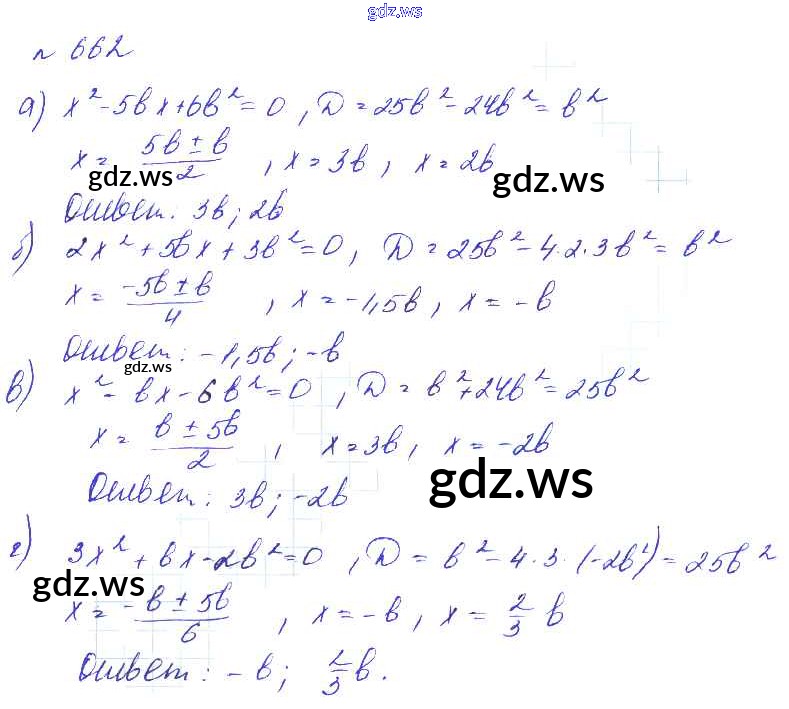 gdz.ws
№ 662
а) x² - 5bx + 6b² = 0, D = 25b² - 24b² = b²
x = (5b ± b)/2, x = 3b, x = 2b
gdz.ws gdz.ws
Ответ: 3b; 2b
б) 2x² + 5bx + 3b² = 0, D = 25b² - 4·2·3b² = b²
x = (-5b ± b)/4, x = -1,5b, x = -b
Ответ: -1,5b; -b
gdz.ws
в) x² - bx - 6b² = 0, D = b² + 24b² = 25b²
x = (b ± 5b)/2, x = 3b, x = -2b
gdz.ws
Ответ: 3b; -2b
г) 3x² + bx - 2b² = 0, D = b² - 4·3·(-2b²) = 25b²
gdz.ws
x = (-b ± 5b)/6, x = -b, x = 2/3 b
Ответ: -b; 2/3 b.